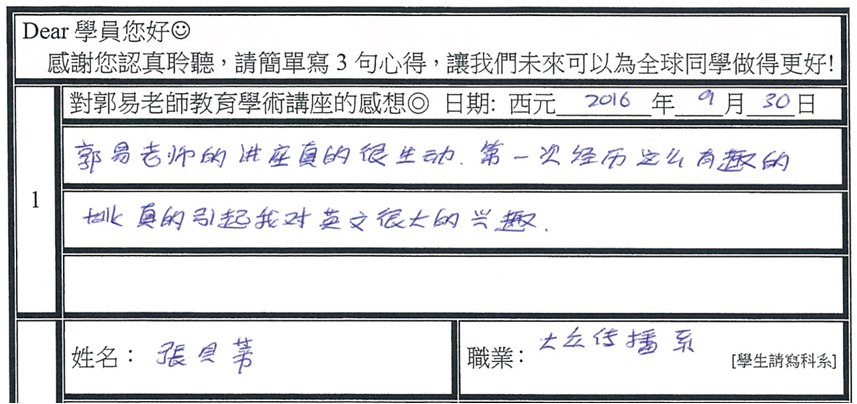 Dear 學員您好☺
感謝您認真聆聽，請簡單寫 3 句心得，讓我們未來可以為全球同學做得更好!
1
對郭易老師教育學術講座的感想◎ 日期: 西元 2016 年 9 月 30 日
郭易老师的讲座真的很生动. 第一次经历这么有趣的
talk 真的引起我对英文很大的兴趣.
姓名： 張貝芾
職業： 大众传播系 [學生請寫科系]